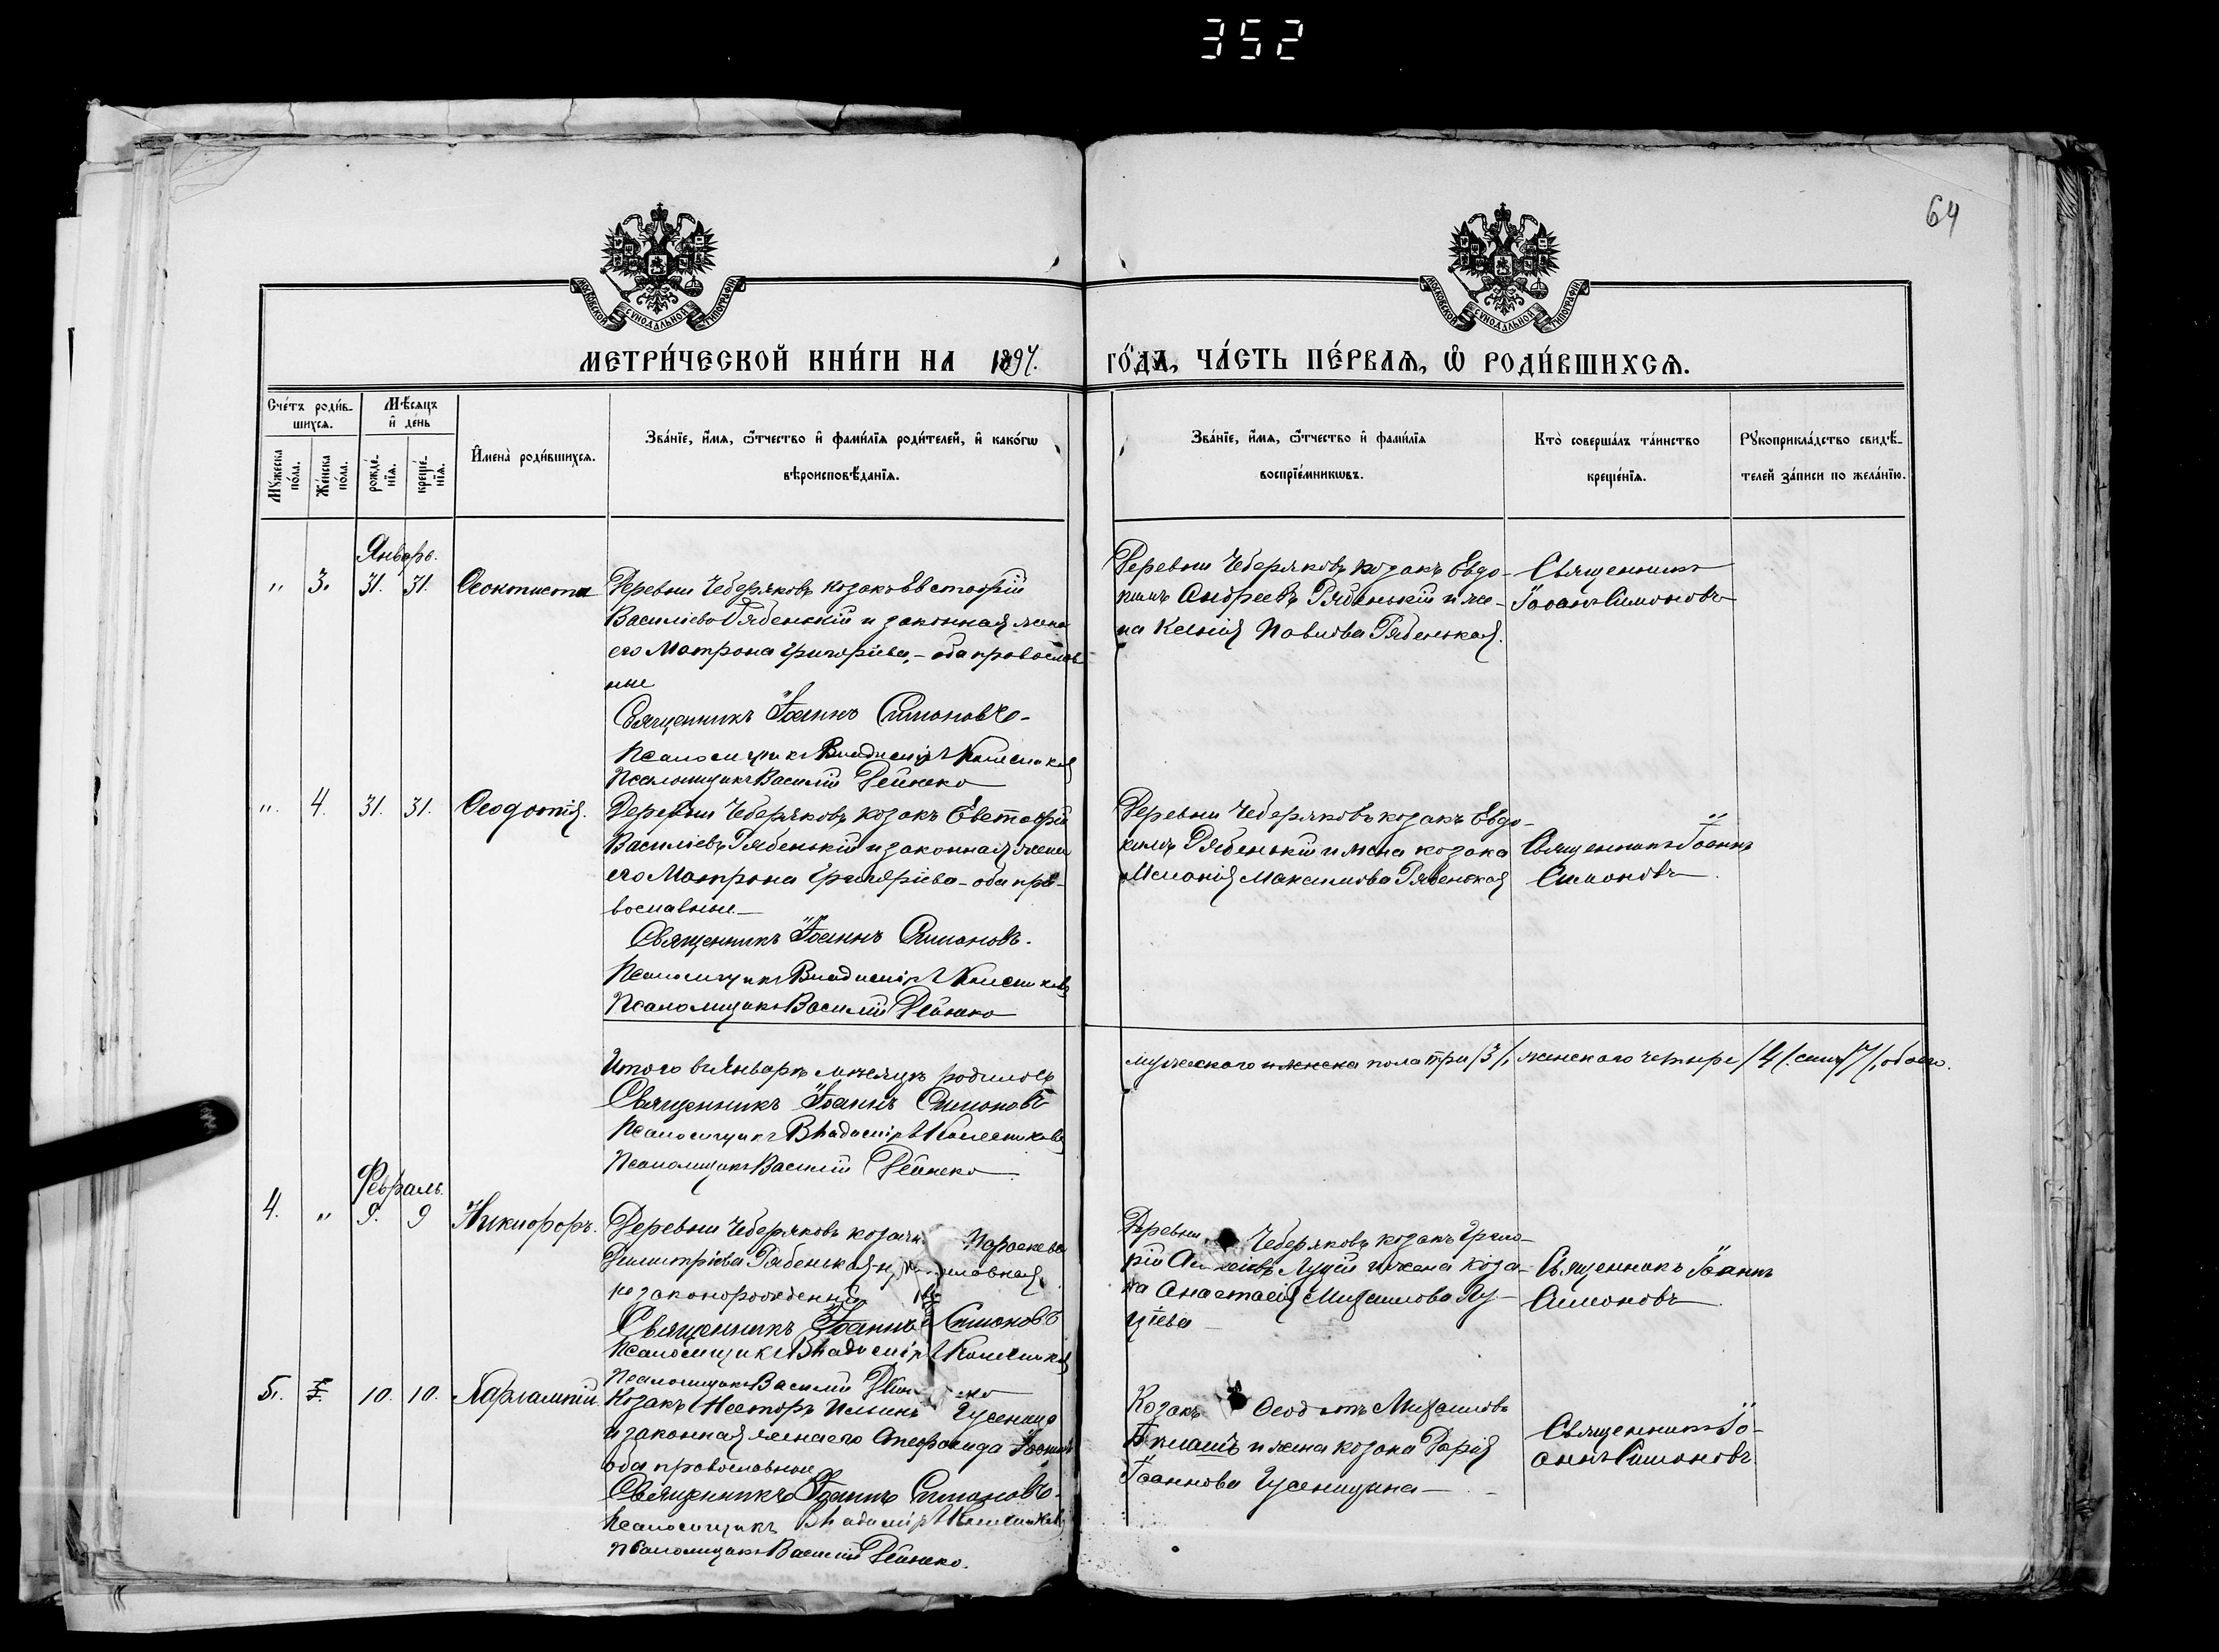 352
64
МОСКОВСКОЙ СѴНОДАЛЬНОЙ ТИПОГРАФІИ
МОСКОВСКОЙ СѴНОДАЛЬНОЙ ТИПОГРАФІИ
МЕТРИ́ЧЕСКОЙ КНИ́ГИ НА 1897. ГО́ДЪ, ЧА́СТЬ ПЕ́РВАѦ, Ѡ РОДИ́ВШИХСѦ.
Сче́тъ роди́в-
шихсѧ.
Мꙋ́жеска
по́ла.
Же́нска
по́ла.
Мѣ́сѧцъ
и҆ де́нь
рожде́-
нїѧ.
креще́-
нїѧ.
И҆мена̀ роди́вшихсѧ.
Зва́нїе, и҆́мѧ, ѻ҆́тчество и҆ фами́лїѧ роди́телей, и҆ како́гѡ
вѣроисповѣ́данїѧ.
Зва́нїе, и҆́мѧ, ѻ҆́тчество и҆ фами́лїѧ
воспрїе́мникѡвъ.
Кто̀ соверша́лъ та́инство
креще́нїѧ.
Рꙋкоприкла́дство свидѣ́-
телей за́писи по жела́нїю.
Январь.
" 3. 31. 31. Ѳеоктиста
Деревни Чеберяковъ козакъ Евстафій
Васильевъ Рябенькій и законная жена
его Матрона Григоріева, - оба православ
ные
Священникъ Іоаннъ Симоновъ-
Псаломщикъ Владиміръ
Псаломщикъ Василій Дейнеко
Деревни Чеберяковъ козакъ Евдо-
кимъ Андреевъ Рябенькій и же-
на Ксенія Павлова Рябенькая.
Священникъ
Іоаннъ Симоновъ
". 4. 31. 31. Ѳеодотія.
Деревни Чеберяковъ козакъ Евстафій
Васильевъ Рябенькій и законная жена
его Матрона Григоріева - оба пра-
вославные
Священникъ Іоаннъ Симоновъ.
Псаломщикъ Владиміръ
Псаломщикъ Василій Дейнеко
Деревни Чеберяковъ козакъ Евдо-
кимъ Рябенькій и жена козака
Меланія Максимова Рябенькая
Священникъ Іоаннъ
Симоновъ
Итого въ Январѣ мѣсяцѣ родилось
мужескаго пола три /3/, женскаго четыре /4/. семь /7/, обоего.
Священникъ Іоаннъ Симоновъ
Псаломщикъ Владиміръ
Псаломщикъ Василій Дейнеко
Февраль.
4. " 9. 9 Никифоръ.
Деревни Чеберяковъ козачка Параскева
Димитріева Рябенькая
незаконорожденный
Священникъ Іоаннъ Симоновъ
Псаломщикъ Владиміръ
Псаломщикъ Василій
Деревни Чеберяковъ козакъ Григо-
рій Луцій и жена коза-
ка Анастасія Михаилова Лу-
ціева
Священникъ Іоаннъ
Симоновъ
5. 10. 10. Харлампій.
Козакъ Несторъ Ильинъ
и законная жена его
оба православные
Священникъ Іоаннъ Симоновъ.
Псаломщикъ Владиміръ
Псаломщикъ Василій Дейнеко.
Козакъ Ѳеодотъ Михаиловъ
и жена козака Дарія
Іоаннова
Священникъ Іо-
аннъ Симоновъ